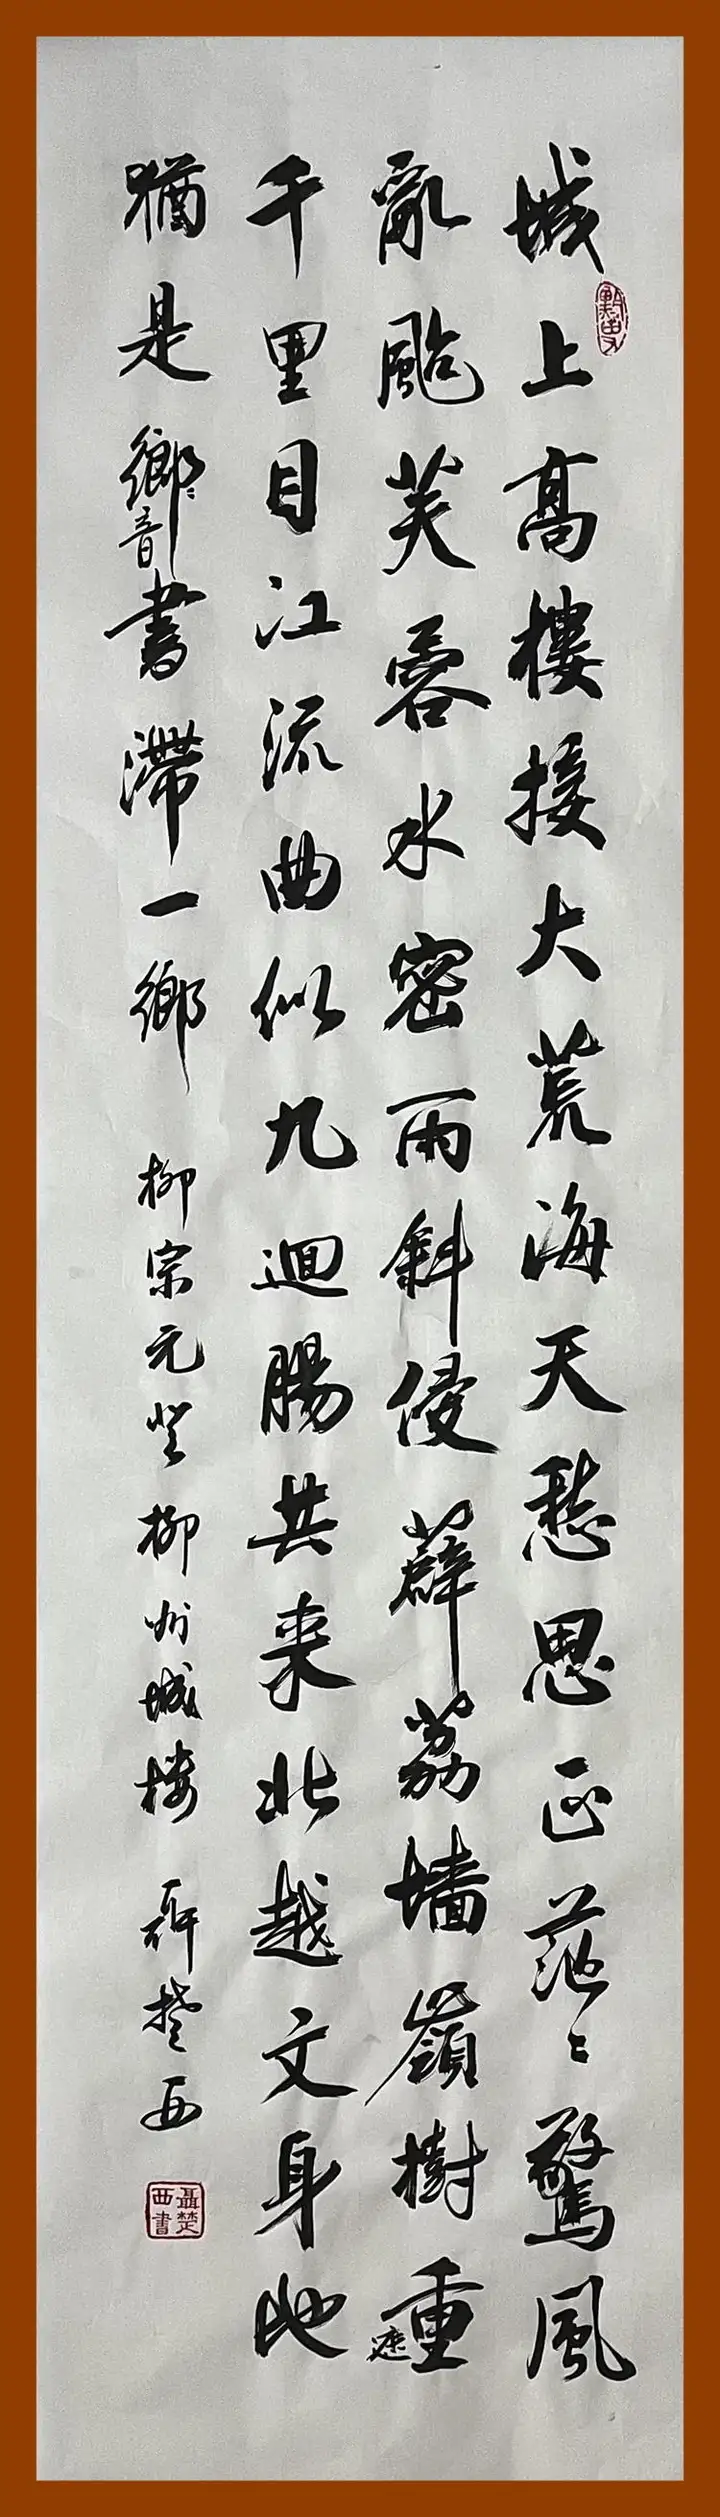 城上高樓接大荒海天愁思正茫〻驚風
亂颭芙蓉水密雨斜侵薜荔墙嶺樹重遮
千里目江流曲似九迴腸共来北越文身地
猶是鄉音書滯一鄉 柳宗元登柳州城楼 聶楚西
聶楚西書